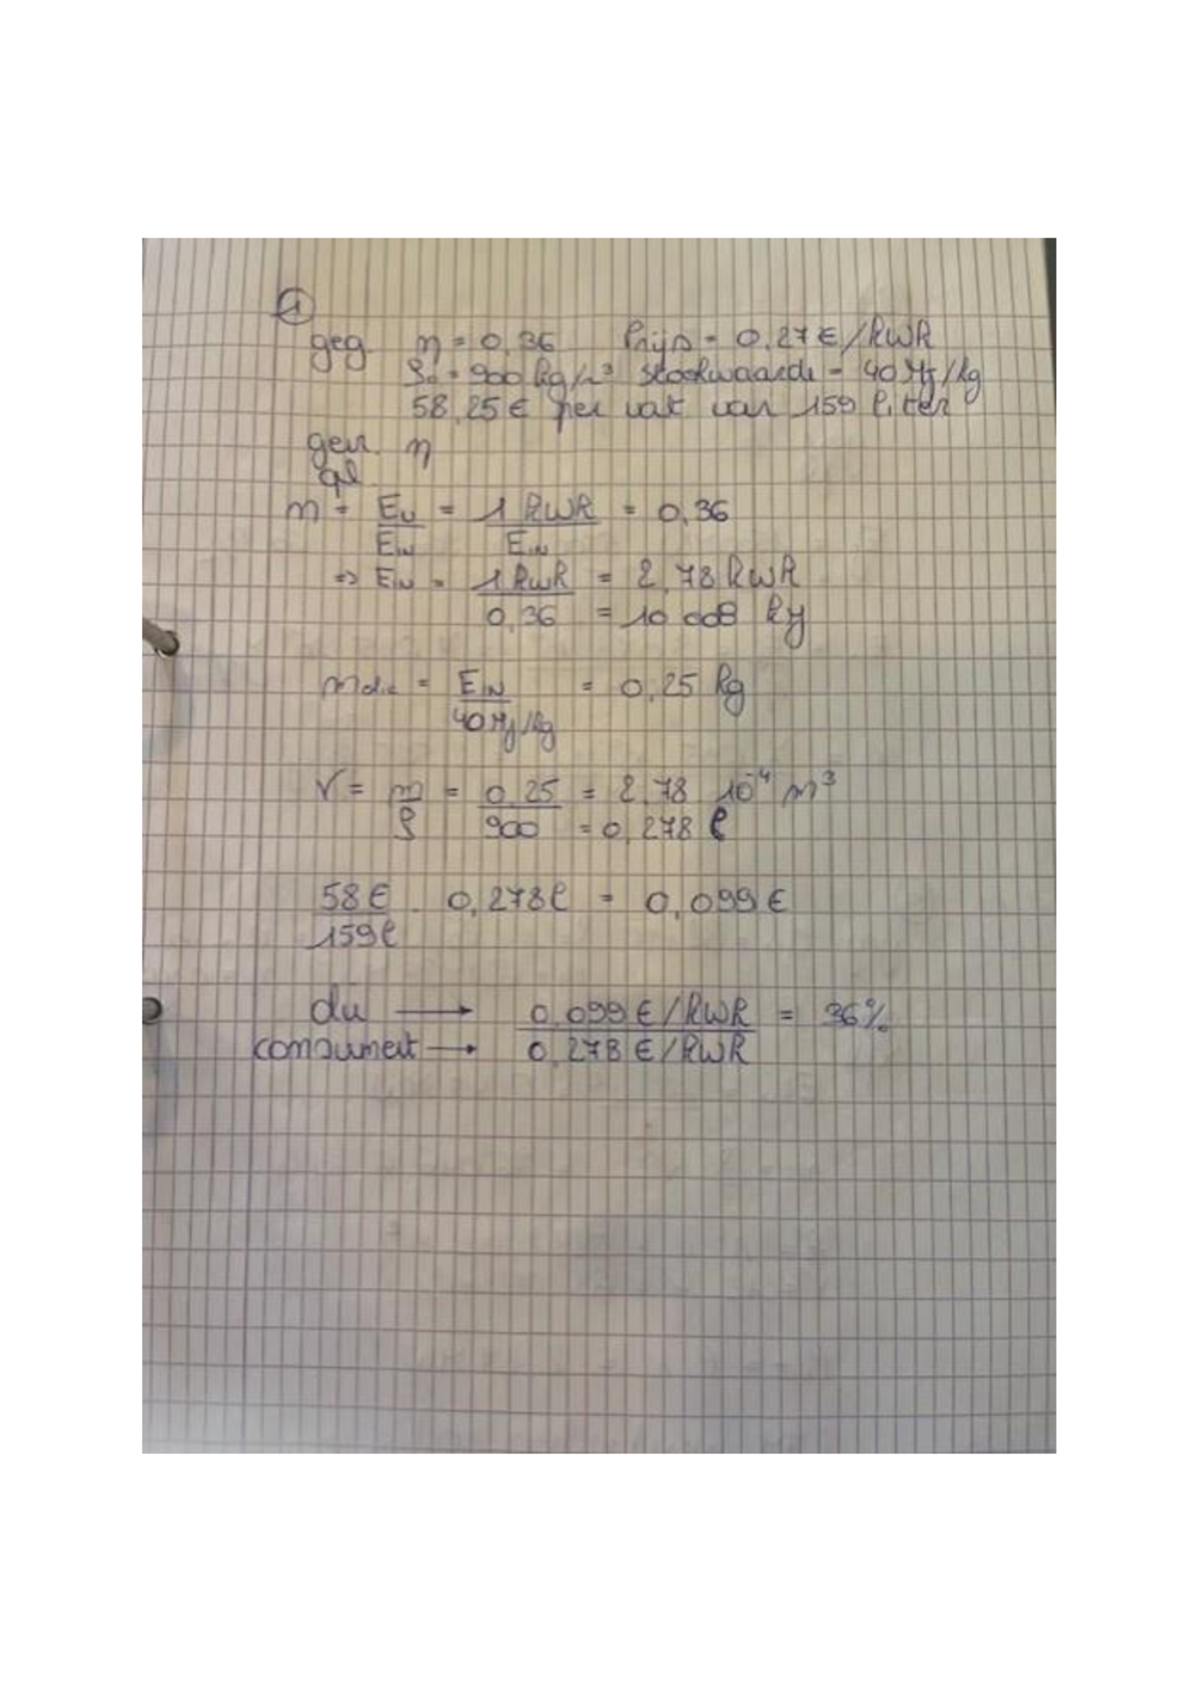 1
geg. η = 0,36 Prijs = 0,27 €/kWh
ρo = 900 kg/m³ stookwaarde = 40 MJ/kg
58,25 € per vat van 159 liter
gevr. η
opl.
η = Eu/Ein = 1 kWh/Ein = 0,36
=> Ein = 1 kWh/0,36 = 2,78 kWh
= 10 008 kJ
molie = Ein/40 MJ/kg = 0,25 kg
V = m/ρ = 0,25/900 = 2,78 10⁻⁴ m³
= 0,278 l
58 €/159 l . 0,278 l = 0,099 €
du → 0,099 €/kWh = 36%
consument → 0,278 €/kWh